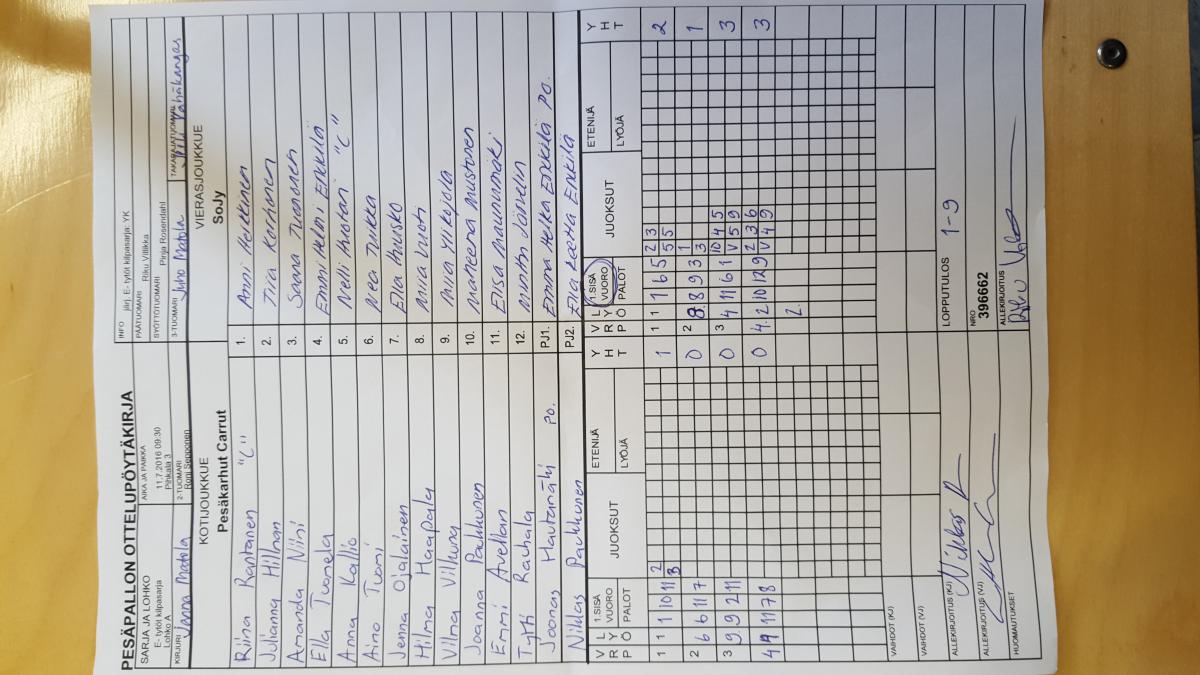 PESÄPALLON OTTELUPÖYTÄKIRJA
SARJA JA LOHKO
E- tytöt kilpasarja
Lohko A
AIKA JA PAIKKA
11.7.2016 09:30
Pihkala 3
INFO järj. E- tytöt kilpasarja: YK
PÄÄTUOMARI Riku Villikka
SYÖTTÖTUOMARI Pinja Rosendahl
KIRJURI Janna Matola
2-TUOMARI
Roni Sepponen
3-TUOMARI Juho Matola
TAKARAJATUOMARI
KOTIJOUKKUE
Pesäkarhut Carrut
VIERASJOUKKUE
SoJy
Riina Rantanen "C" 1. Anni Heikkinen
Julianna Hillman 2. Tiia Korhonen
Amanda Niini 3. Saana Tuononen
Ella Tuomela 4. Emmi Helmi Enkkilä
Anna Kallio 5. Nelli Huotari "C"
Aino Tuomi 6. Nea Tuikka
Jenna Ojalainen 7. Ella Khusko
Hilma Haapala 8. Miia Vuoti
Vilma Vilhuna 9. Minja Ylikojola
Joanna Paukkunen 10. Matleena Mustonen
Emmi Avellan 11. Elisa Maununmäki
Tytti Rauhala 12. Minttu Järvelin
Joonas Hautamäki PO. PJ1. Emma Helka Enkkilä PO.
Niklas Paukkunen PJ2. Eija Reetta Enkkilä
V R P L Y Ö 1.SISÄ VUORO PALOT JUOKSUT ETENIJÄ LYÖJÄ Y H T V R P L Y Ö 1.SISÄ VUORO PALOT JUOKSUT ETENIJÄ LYÖJÄ Y H T
1 1 1 10 11 2 3 1 1 1 1 6 5 2 3 5 5 2
2 6 6 11 7 0 2 8 8 9 3 1 3 1
3 9 9 2 11 0 3 4 11 6 1 10 4 5 V 5 9 3
4 11 11 7 8 0 4 2 10 12 9 2 3 6 V 4 9 3
2
VAIHDOT (KJ)
VAIHDOT (VJ)
ALLEKIRJOITUS (KJ)
LOPPUTULOS 1-9
ALLEKIRJOITUS (VJ)
NRO
396662
HUOMAUTUKSET
ALLEKIRJOITUS